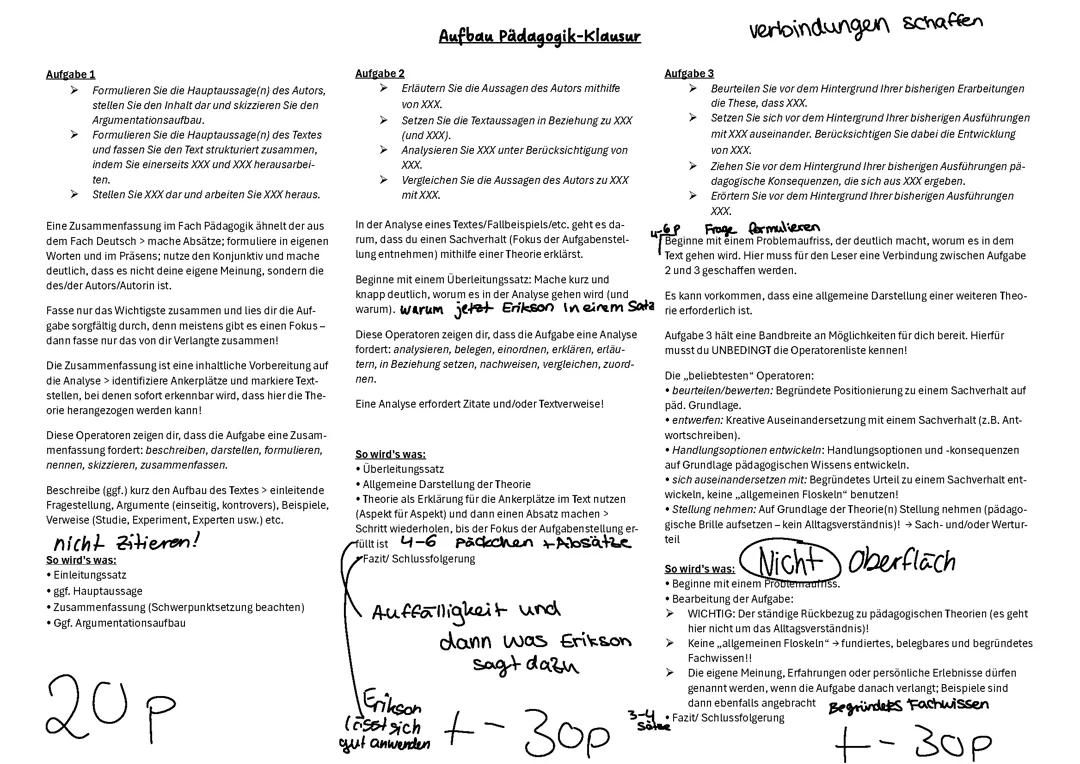 Aufbau Pädagogik-Klausur
verbindungen schaffen
Aufgabe 1
➢ Formulieren Sie die Hauptaussage(n) des Autors,
stellen Sie den Inhalt dar und skizzieren Sie den
Argumentationsaufbau.
➢ Formulieren Sie die Hauptaussage(n) des Textes
und fassen Sie den Text strukturiert zusammen,
indem Sie einerseits XXX und XXX herausarbei-
ten.
➢ Stellen Sie XXX dar und arbeiten Sie XXX heraus.
Eine Zusammenfassung im Fach Pädagogik ähnelt der aus
dem Fach Deutsch > mache Absätze; formuliere in eigenen
Worten und im Präsens; nutze den Konjunktiv und mache
deutlich, dass es nicht deine eigene Meinung, sondern die
des/der Autors/Autorin ist.
Fasse nur das Wichtigste zusammen und lies dir die Auf-
gabe sorgfältig durch, denn meistens gibt es einen Fokus –
dann fasse nur das von dir Verlangte zusammen!
Die Zusammenfassung ist eine inhaltliche Vorbereitung auf
die Analyse > identifiziere Ankerplätze und markiere Text-
stellen, bei denen sofort erkennbar wird, dass hier die The-
orie herangezogen werden kann!
Diese Operatoren zeigen dir, dass die Aufgabe eine Zusam-
menfassung fordert: beschreiben, darstellen, formulieren,
nennen, skizzieren, zusammenfassen.
Beschreibe (ggf.) kurz den Aufbau des Textes > einleitende
Fragestellung, Argumente (einseitig, kontrovers), Beispiele,
Verweise (Studie, Experiment, Experten usw.) etc.
nicht Zitieren!
So wird's was:
• Einleitungssatz
• ggf. Hauptaussage
• Zusammenfassung (Schwerpunktsetzung beachten)
• Ggf. Argumentationsaufbau
20 p
Aufgabe 2
➢ Erläutern Sie die Aussagen des Autors mithilfe
von XXX.
➢ Setzen Sie die Textaussagen in Beziehung zu XXX
(und XXX).
➢ Analysieren Sie XXX unter Berücksichtigung von
XXX.
➢ Vergleichen Sie die Aussagen des Autors zu XXX
mit XXX.
In der Analyse eines Textes/Fallbeispiels/etc. geht es da-
rum, dass du einen Sachverhalt (Fokus der Aufgabenstel-
lung entnehmen) mithilfe einer Theorie erklärst.
Beginne mit einem Überleitungssatz: Mache kurz und
knapp deutlich, worum es in der Analyse gehen wird (und
warum). warum jetzt Erikson in einem Satz
Diese Operatoren zeigen dir, dass die Aufgabe eine Analyse
fordert: analysieren, belegen, einordnen, erklären, erläu-
tern, in Beziehung setzen, nachweisen, vergleichen, zuord-
nen.
Eine Analyse erfordert Zitate und/oder Textverweise!
So wird's was:
• Überleitungssatz
• Allgemeine Darstellung der Theorie
• Theorie als Erklärung für die Ankerplätze im Text nutzen
(Aspekt für Aspekt) und dann einen Absatz machen >
Schritt wiederholen, bis der Fokus der Aufgabenstellung er-
füllt ist 4-6 Päckchen + Absätze
• Fazit/ Schlussfolgerung
Auffälligkeit und
dann was Erikson
sagt dazu
Erikson
lässt sich
gut anwenden
+ - 30p
Aufgabe 3
➢ Beurteilen Sie vor dem Hintergrund Ihrer bisherigen Erarbeitungen
die These, dass XXX.
➢ Setzen Sie sich vor dem Hintergrund Ihrer bisherigen Ausführungen
mit XXX auseinander. Berücksichtigen Sie dabei die Entwicklung
von XXX.
➢ Ziehen Sie vor dem Hintergrund Ihrer bisherigen Ausführungen pä-
dagogische Konsequenzen, die sich aus XXX ergeben.
➢ Erörtern Sie vor dem Hintergrund Ihrer bisherigen Ausführungen
XXX.
4-6 p Frage formulieren
Beginne mit einem Problemaufriss, der deutlich macht, worum es in dem
Text gehen wird. Hier muss für den Leser eine Verbindung zwischen Aufgabe
2 und 3 geschaffen werden.
Es kann vorkommen, dass eine allgemeine Darstellung einer weiteren Theo-
rie erforderlich ist.
Aufgabe 3 hält eine Bandbreite an Möglichkeiten für dich bereit. Hierfür
musst du UNBEDINGT die Operatorenliste kennen!
Die „beliebtesten“ Operatoren:
• beurteilen/bewerten: Begründete Positionierung zu einem Sachverhalt auf
päd. Grundlage.
• entwerfen: Kreative Auseinandersetzung mit einem Sachverhalt (z.B. Ant-
wortschreiben).
• Handlungsoptionen entwickeln: Handlungsoptionen und -konsequenzen
auf Grundlage pädagogischen Wissens entwickeln.
• sich auseinandersetzen mit: Begründetes Urteil zu einem Sachverhalt ent-
wickeln, keine „allgemeinen Floskeln“ benutzen!
• Stellung nehmen: Auf Grundlage der Theorie(n) Stellung nehmen (pädago-
gische Brille aufsetzen – kein Alltagsverständnis)! → Sach- und/oder Wertur-
teil
Nicht Oberfläch
So wird's was:
• Beginne mit einem Problemaufriss.
• Bearbeitung der Aufgabe:
➢ WICHTIG: Der ständige Rückbezug zu pädagogischen Theorien (es geht
hier nicht um das Alltagsverständnis)!
➢ Keine „allgemeinen Floskeln“ → fundiertes, belegbares und begründetes
Fachwissen!!
➢ Die eigene Meinung, Erfahrungen oder persönliche Erlebnisse dürfen
genannt werden, wenn die Aufgabe danach verlangt; Beispiele sind
dann ebenfalls angebracht Begründetes Fachwissen
3-4 Sätze • Fazit/ Schlussfolgerung
+ - 30p